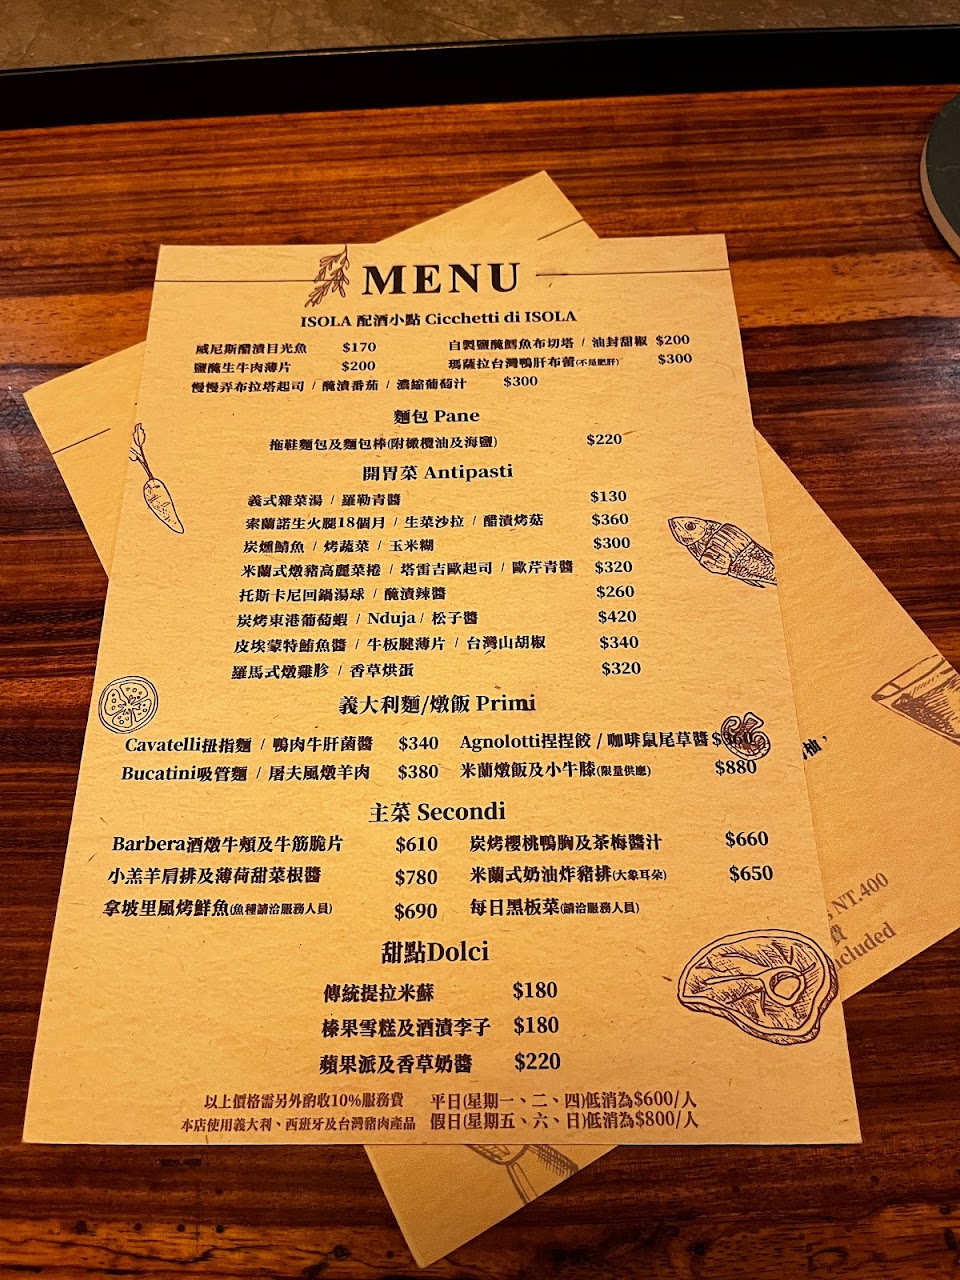 MENU
ISOLA 配酒小點 Cicchetti di ISOLA
威尼斯醋漬目光魚 $170 自製鹽醃鱈魚布切塔 / 油封甜椒 $200
鹽醃生牛肉薄片 $200 瑪薩拉台灣鴨肝布蕾(不是肥肝) $300
慢慢弄布拉塔起司 / 醃漬番茄 / 濃縮葡萄汁 $300
麵包 Pane
拖鞋麵包及麵包棒(附橄欖油及海鹽) $220
開胃菜 Antipasti
義式雜菜湯 / 羅勒青醬 $130
索蘭諾生火腿18個月 / 生菜沙拉 / 醋漬烤菇 $360
炭燻鯖魚 / 烤蔬菜 / 玉米糊 $300
米蘭式燉豬高麗菜捲 / 塔雷吉歐起司 / 歐芹青醬 $320
托斯卡尼回鍋湯球 / 醃漬辣醬 $260
炭烤東港葡萄蝦 / Nduja / 松子醬 $420
皮埃蒙特鮪魚醬 / 牛板腱薄片 / 台灣山胡椒 $340
羅馬式燉雞胗 / 香草烘蛋 $320
義大利麵/燉飯 Primi
Cavatelli扭指麵 / 鴨肉牛肝菌醬 $340 Agnolotti捏捏餃 / 咖啡鼠尾草醬 $360
Bucatini吸管麵 / 屠夫風燉羊肉 $380 米蘭燉飯及小牛膝(限量供應) $880
主菜 Secondi
Barbera酒燉牛頰及牛筋脆片 $610 炭烤櫻桃鴨胸及茶梅醬汁 $660
小羔羊肩排及薄荷甜菜根醬 $780 米蘭式奶油炸豬排(大象耳朵) $650
拿坡里風烤鮮魚(魚種請洽服務人員) $690 每日黑板菜(請洽服務人員)
甜點Dolci
傳統提拉米蘇 $180
榛果雪糕及酒漬李子 $180
蘋果派及香草奶醬 $220
以上價格需另外酌收10%服務費 平日(星期一、二、四)低消為$600/人
本店使用義大利、西班牙及台灣豬肉產品 假日(星期五、六、日)低消為$800/人
柚，
NT.400
費
included